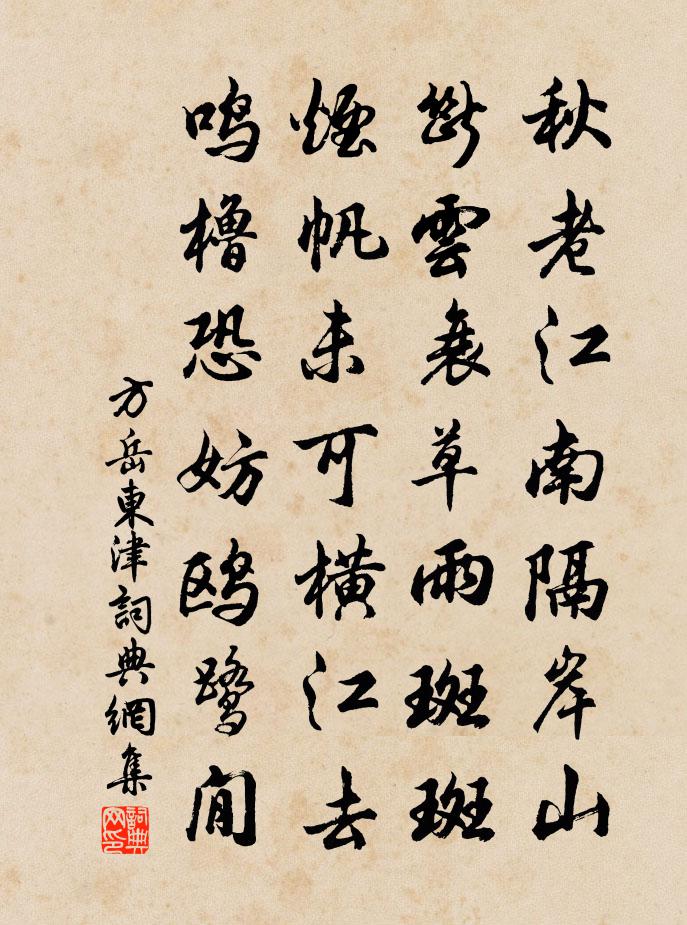 秋老江南隔岸山
斷雲衰草雨斑斑
煙帆未可橫江去
鳴櫓恐妨鷗鷺閒
方岳東津詞典網集
詞典網印